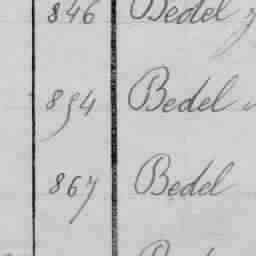 846 Bedel
854 Bedel
867 Bedel